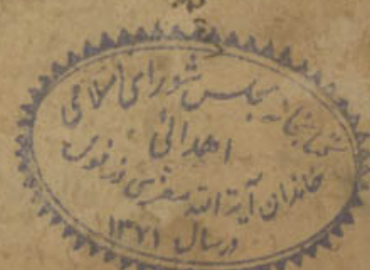 کتابخانه مجلس شورای اسلامی
اهدائی
خاندان آیة الله معزی دزفولی
در سال ۱۳۷۱